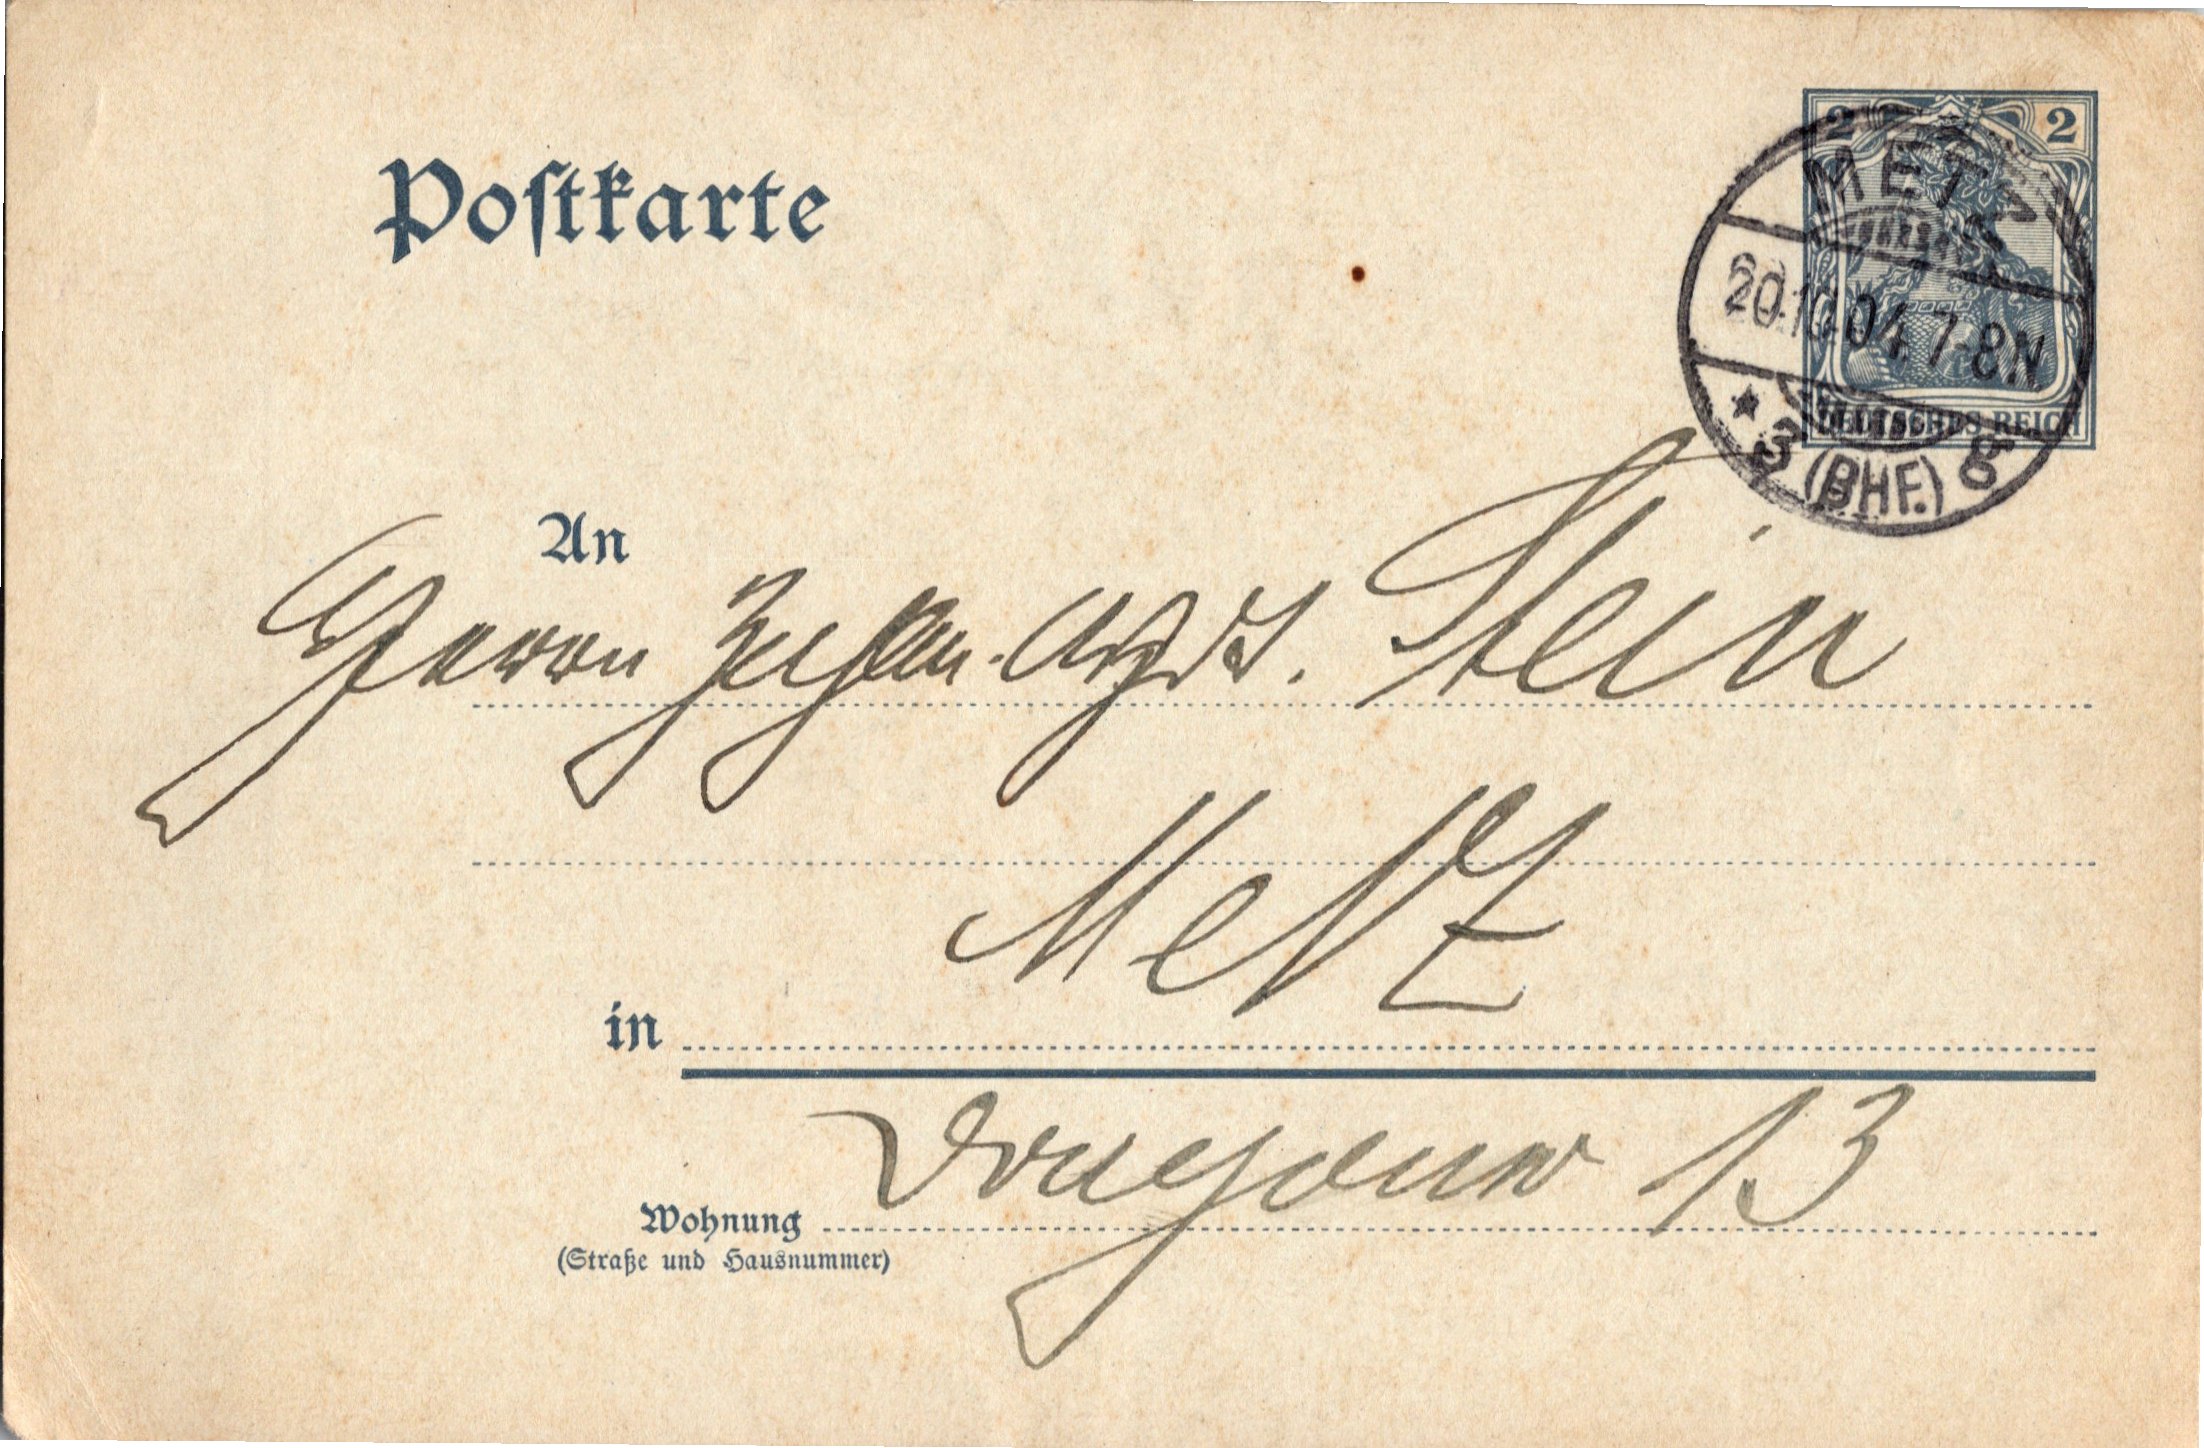 Postkarte
2 2
DEUTSCHES REICH
METZ
20.10.04.7-8N
* 3 (BHF.) g
An
Herrn Stein
Metz
in
13
Wohnung
(Straße und Hausnummer)